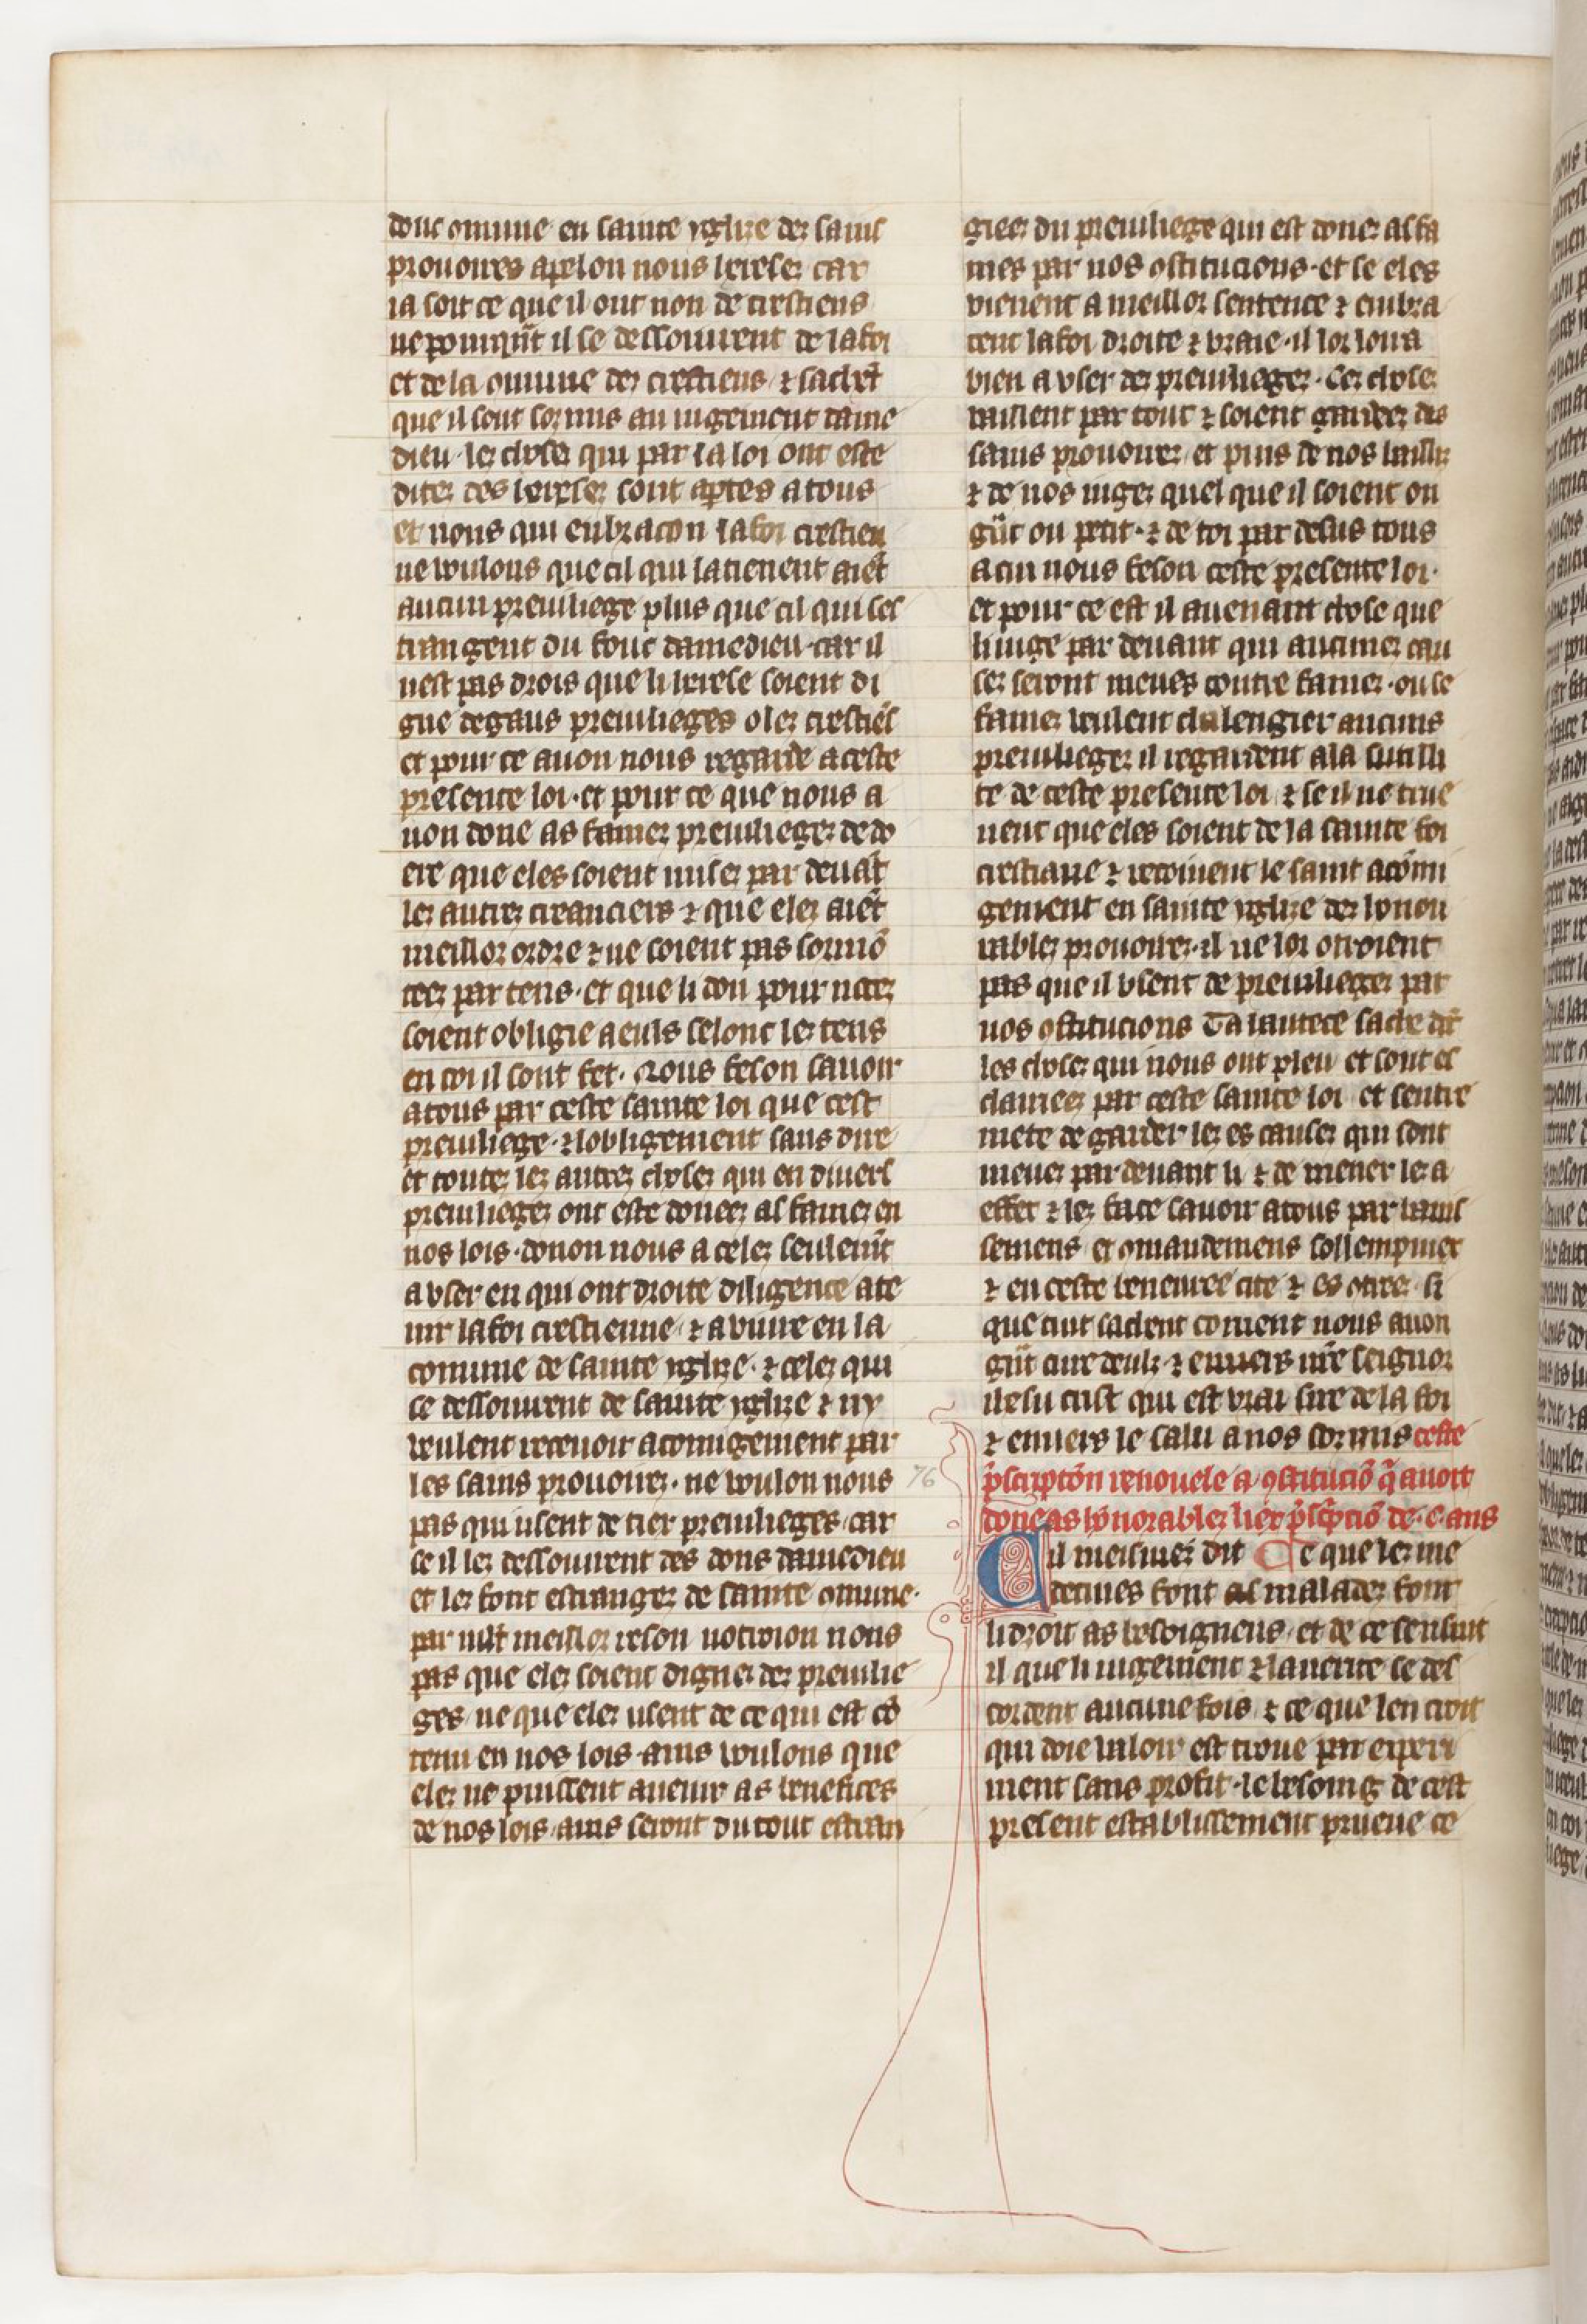 donc ɔmune en sainte yglize dez sains
prouoires apelon nous hereses car
ia soit ce que il ont non de crestiens
ne pourqũt il se dessoiurent de la foi
et de la ɔmune dez crestiens ⁊ sachẽt
que il sont sozmis au iugement dame
dieu. lez choses qui par la loi ont este
ditez des hereses sont aptes a tous
et nous qui enbzacon la foi crestien
ne woulons que cil qui la tienent aiẽt
aucun preuiliege plus que cil qui ses
trangent du fouc damedieu. car il
nest pas drois que li herese soient di
gne degaus preuilieges o lez crestiẽs
et pour ce auon nous regarde a ceste
presente loi. et pour ce que nous a
uon done as famez preuiliegez de do
ere que eles soient misez par deuãt
lez autrez creanciers ⁊ que elez aiẽt
meillor ordre ⁊ ne soient pas sormõ
teez par tens. et que li don pour nocez
soient obligie a euls selonc lez tens
en coi il sont fet. Nous feson sauoir
a tous par ceste sainte loi que cest
preuiliege. ⁊ lobligement sans dire
et toutez lez autrez chosez qui en diuers
preuiliegez ont este doneez as famez en
nos lois. donon nous a celez seulemẽt
a vser en qui ont droite diligence a te
nir la foi crestienne. ⁊ a viure en la
comune de sainte yglize. ⁊ celez qui
se dessoiurent de sainte yglize ⁊ ny
veulent receuoir acomigement par
les sains prouoirez. ne woulon nous
pas qui usent de tiex preuilieges. car
se il lez dessoiurent des dons damedieu
et lez font estrangez de sainte ɔmune.
par mlt meillor reson notroion nous
pas que elez soient dignez dez preuilie
ges. ne que elez usent de ce qui est cõ
tenu en nos lois. ains woulons que
elez ne puissent auenir as benefices
de nos lois. ains seront du tout estran
giees du preuiliege qui est donez as fa
mes par nos ɔstitucions. et se eles
vienent a meillor sentence ⁊ enbza
cent la foi droite ⁊ vraie. il lor loira
bien a vser dez preuiliegez. Cez choses
vaillent par tout ⁊ soient gardeez des
sains prouoirez. et puis de nos baillis
⁊ de nos iugez quel que il soient ou
gũt ou petit. ⁊ de toi par desus tous
a cui nous feson ceste presente loi.
et pour ce est il auenant chose que
li iuge par deuant qui aucunez cau
sez seront meues contre famez. ou se
famez veulent chalengier aucuns
preuiliegez il regardent a la sutilli
te de ceste presente loi. ⁊ se il ne true
uent que eles soient de la sainte foi
crestiane ⁊ recoiuent le saint acõmi
gement en sainte yglize dez honou
rablez prouoirez. il ne lor otroient
pas que il vsent de preuiliegez par
nos ɔstitucions Ta hautece sache dõt
les chosez qui nous ont pleu et sont es
claireez par ceste sainte loi et sentre
mete de garder lez es causez qui sont
meuez par deuant li ⁊ de mener lez a
effet ⁊ lez face sauoir a tous par banis
semens et ɔmandemens sollempniex
⁊ en ceste beneuree cite ⁊ es ɔtreez. si
que tuit sachent coment nous auon
gũt cure deulz. ⁊ enuers nr̃e seignor
ihesu crist qui est vrai sire de la foi
⁊ enuers le salu a nos sozmis ceste
p̃scriptõn renouele a ɔstituciõ q̃ auoit
donee as hõnorablez liex p̃scpciõ de .c. ans
76
Cil meismez dit Ce que lez me
decines font as maladez font
li droit as besoigneus. et de ce sensuit
il que li iugement ⁊ lauerite se des
cordent aucune fois. ⁊ ce que len croit
qui doie valoir est troue par experi
ment sans profit. le besoing de cest
present establissement prueue ce